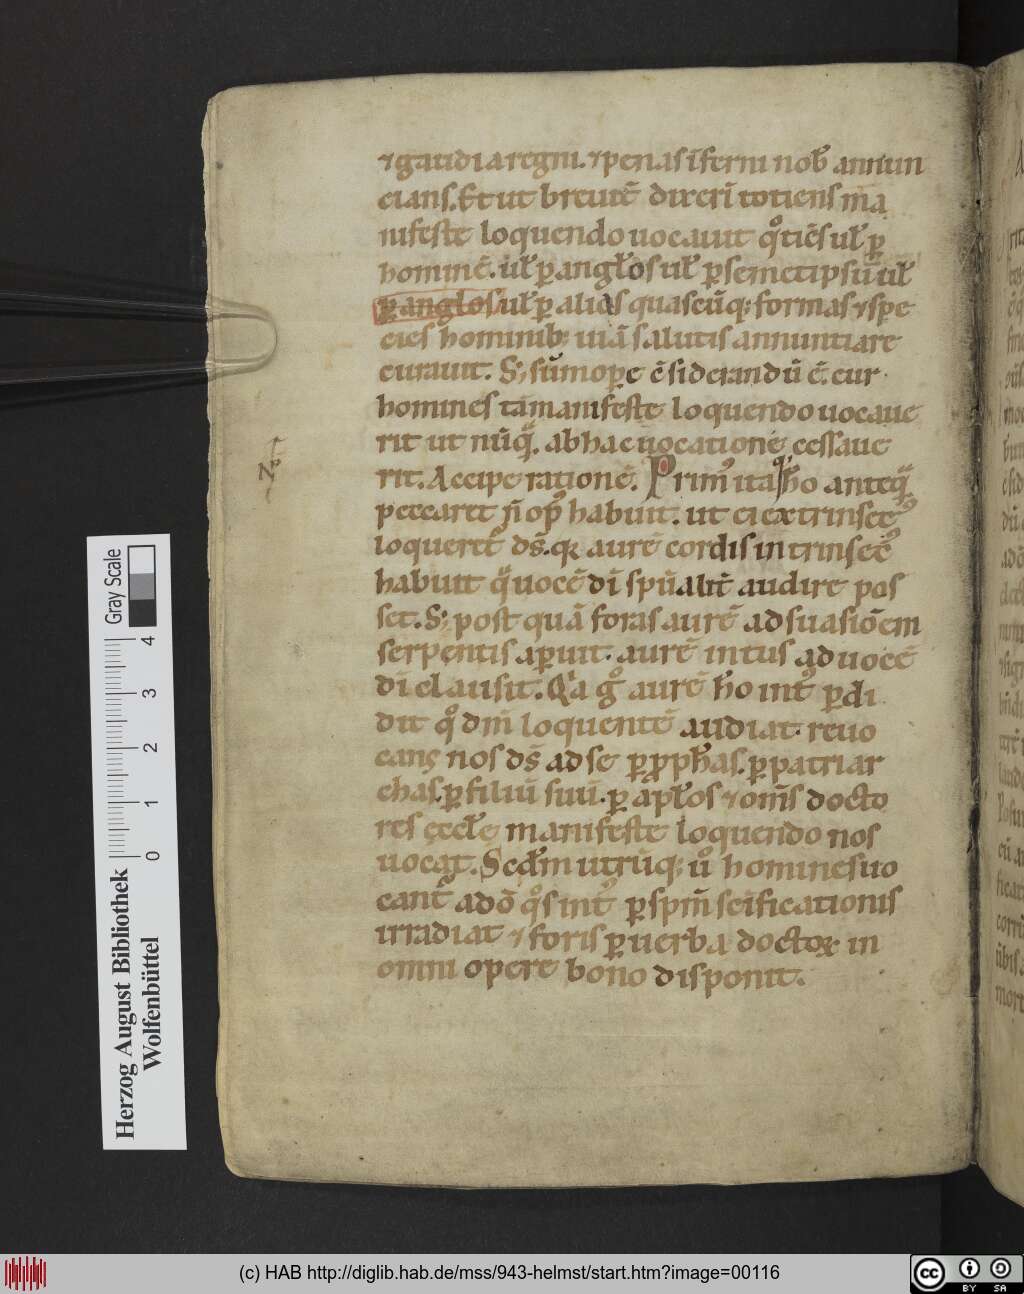 ⁊gaudia regni. ⁊penas īferni nob̄ annun
cians. Et ut breuit̄ dixeri totiens ma
nifeste loquendo uocauit qͦtiēs uł ꝑ
hominē. uł ꝑ angłos uł ꝑ semetipsū uł
ꝑ angłos uł ꝑ alias quascūq; formas ⁊spe
cies hominib; uiā salutis annuntiare
curauit. S; sūmope c̄siderandū ē. cur
homines tā manifeste loquendo uocaue
rit ut nūqͣ. ab hac uocatione cessaue
rit. Accipe rationē. Prim᷒ itaq; ho anteqͣ
peccaret n̄ op᷒ habuit. ut ei extrinsec᷒
loqueret᷑ ds̄. qꝛ aurē cordis intrinsec᷒
habuit qͣ uocē dī sp̄ualit̄ audire pos
set. S; post quā foras aurē ad suasiōem
serpentis aꝑuit. aurē intus ad uocē
dī clausit. Qͥa gͦ aurē ho int᷒ ꝑdi
dit qͦ dm̄ loquentē audiat. reuo
cans nos ds̄ ad se ꝑ ꝓph̄as. ꝑ patriar
chas. ꝑ filiū suū. ꝑ apłos ⁊om̄s docto
res ęccłę manifeste loquendo nos
uocat. Scdm utrūq; uͦ homines uo
cant᷑ ad dō qͦs int᷒ ꝑ spm̄ scīficationis
irradiat ⁊ foris ꝑ uerba doctoꝝ in
omni opere bono disponit.
Gray Scale
4
3
2
1
0
Herzog August Bibliothek
Wolfenbüttel
(c) HAB http://diglib.hab.de/mss/943-helmst/start.htm?image=00116
cc
BY SA